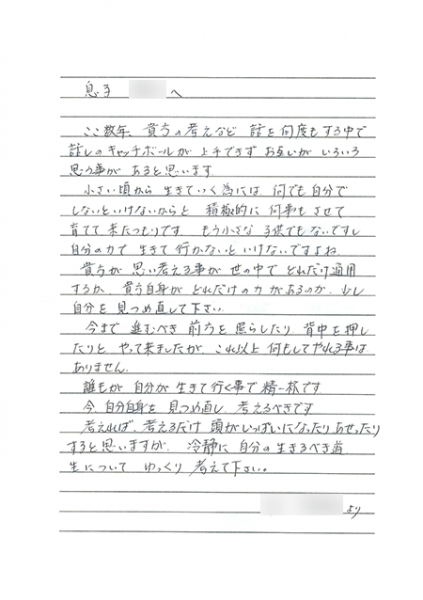 息子 へ
ここ数年、貴方の考えなど 話を何度もする中で
話しのキャッチボールが 上手できず お互いが いろいろ
思う事が あると思います
小さい頃から 生きていく為には 何でも自分で
しないといけないからと 積極的に 何事も させて
育てて 来たつもりです もう小さな 子供でもないですし
自分の力で 生きて 行かないと いけないですよね
貴方が 思い考える事が 世の中で どれだけ通用
するか、貴方自身が どれだけの力があるのか、少し
自分を 見つめ直して下さい
今まで 進むべき 前方を 照らしたり 背中を押し
たりと やって来ましたが これ以上 何もしてやれる事は
ありません
誰もが 自分が 生きて行く事で 精一杯です
今、自分自身を 見つめ直し 考えるべきです
考えれば、考えるだけ 頭がいっぱいになったり あせったり
すると思いますが、冷静に 自分の生きるべき道
生について ゆっくり 考えて下さい。
より